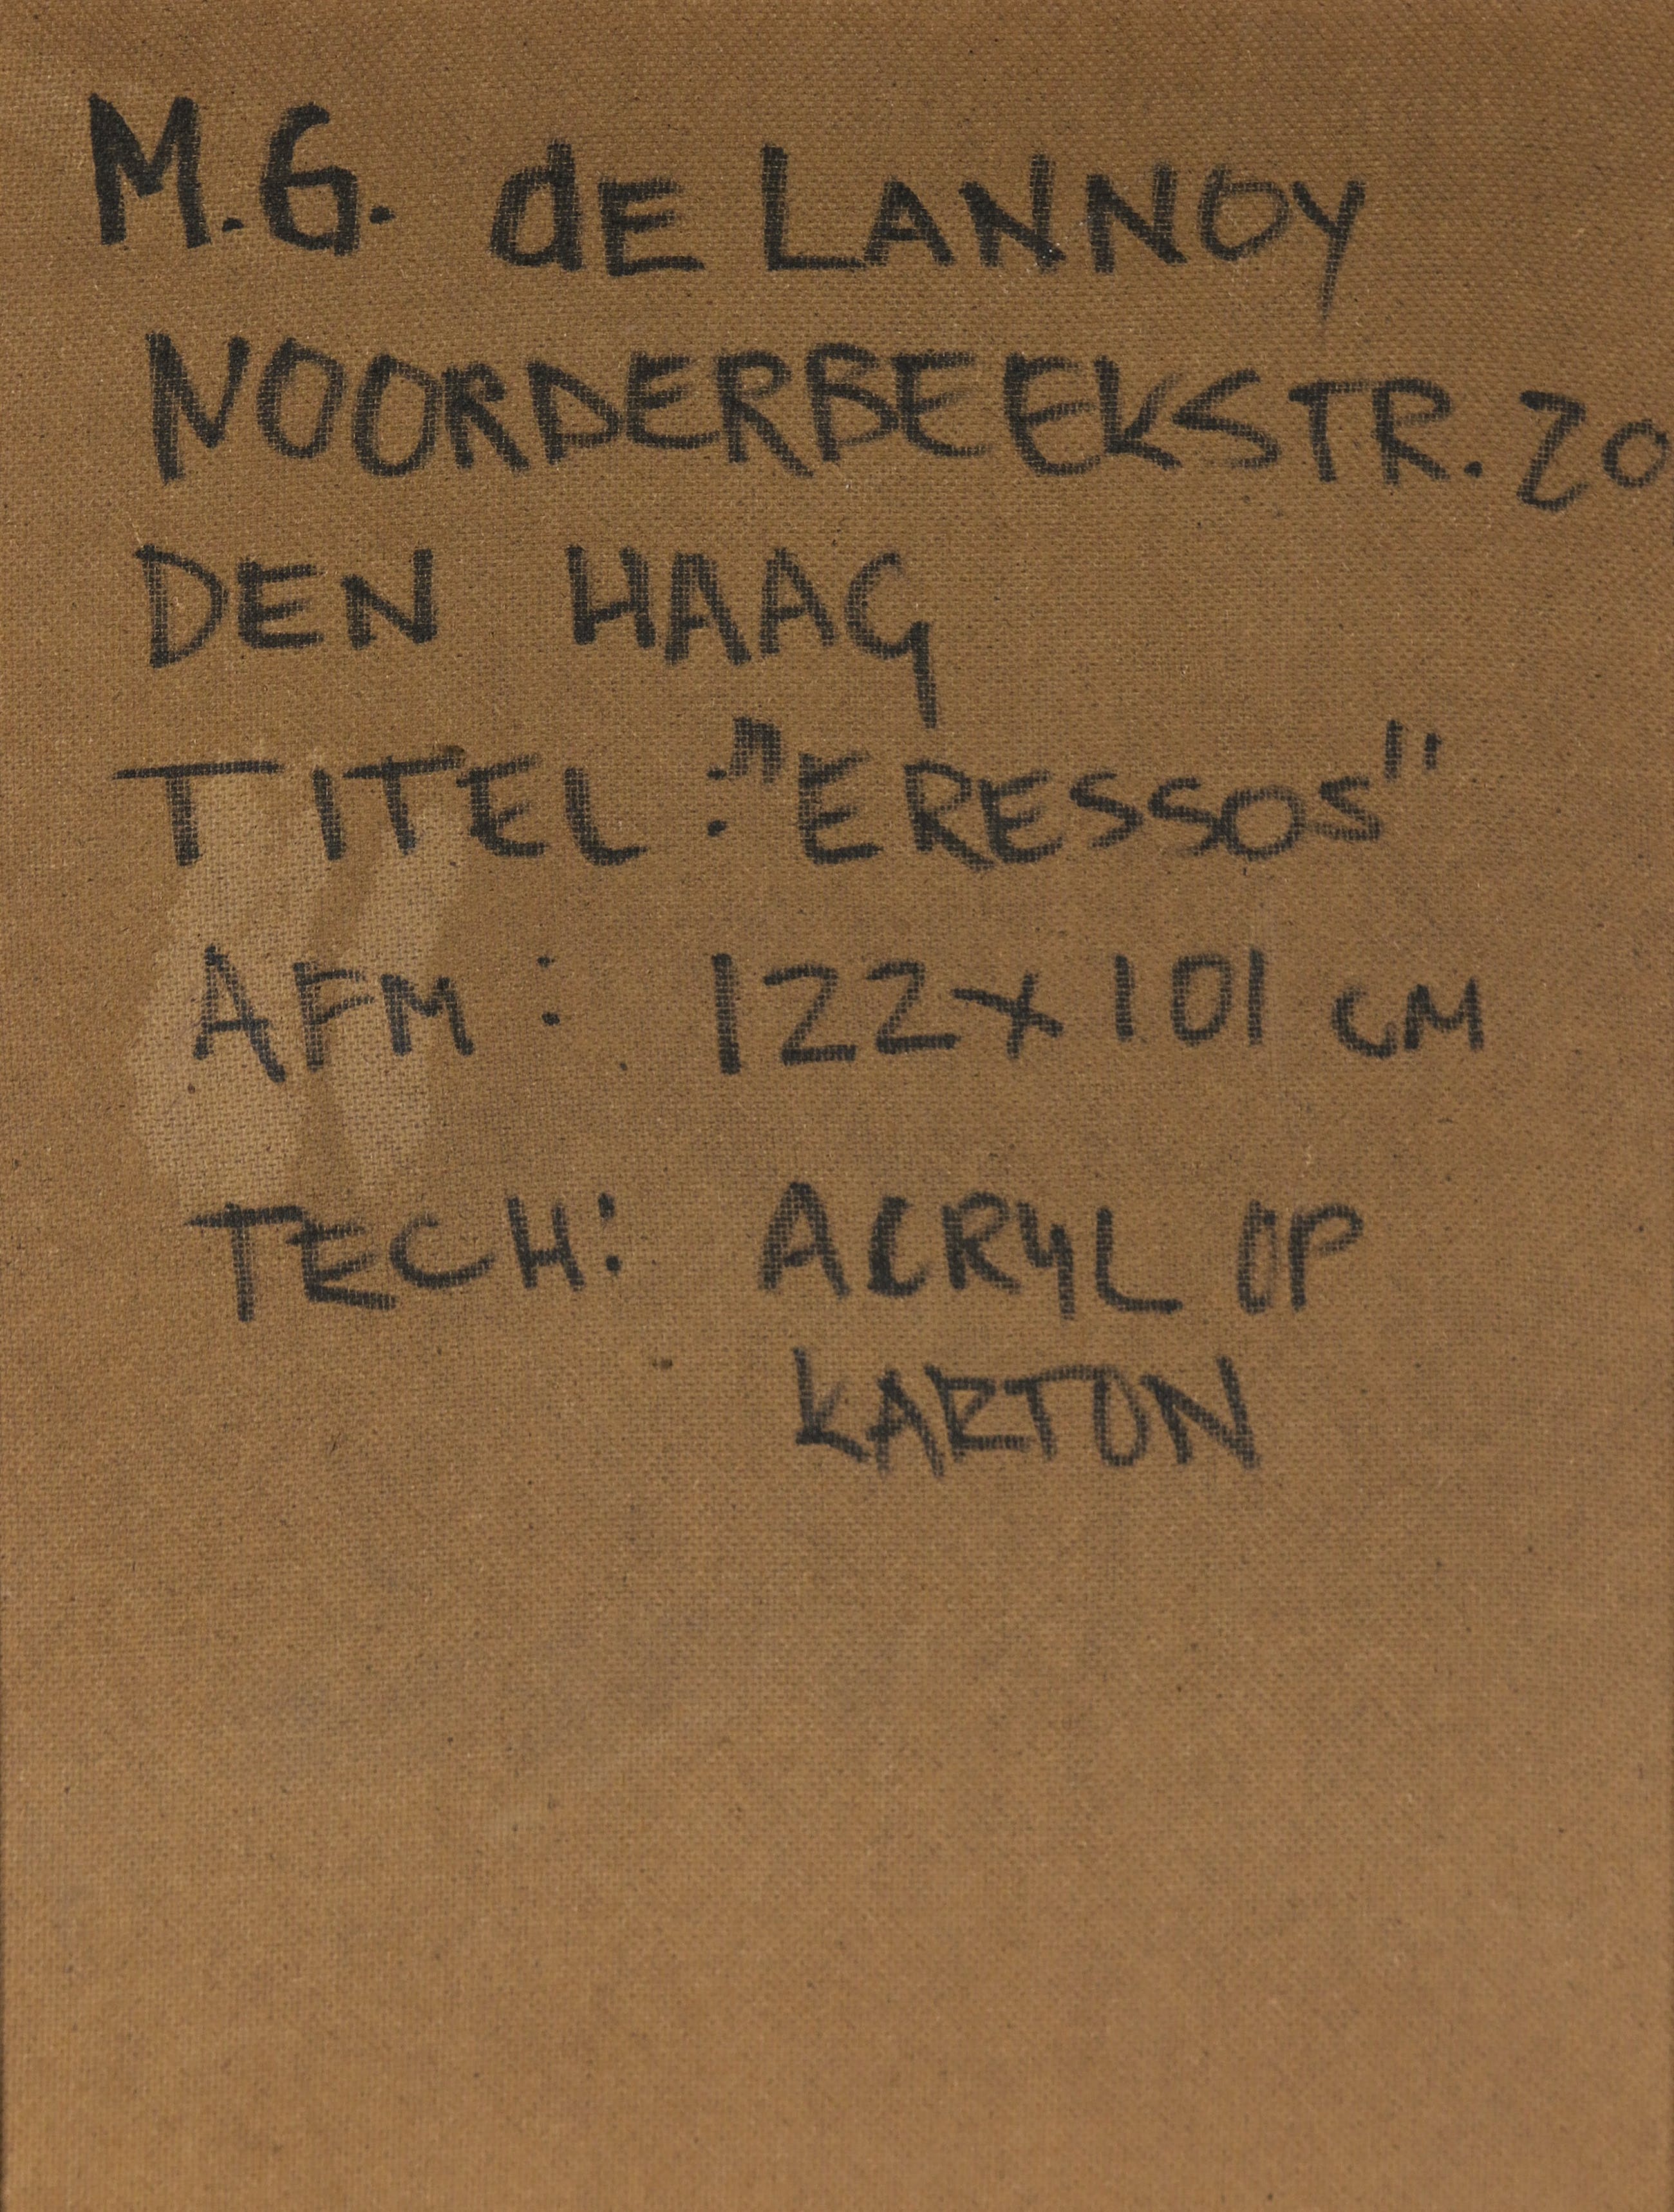 M.G. dE LANNOY
NOORDERBEEKSTR. 20
DEN HAAG
TITEL : "ERESSOS"
AFM : 122 x 101 CM
TECH : ACRYL OP
KARTON